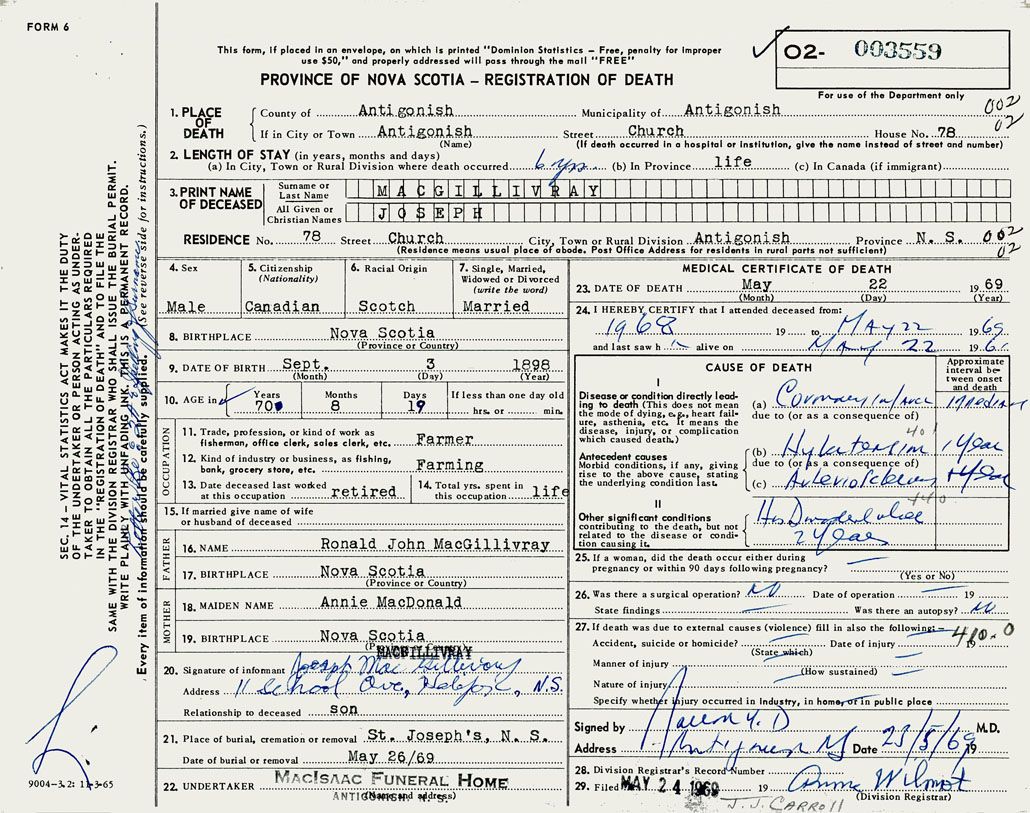 FORM 6
This form, if placed in an envelope, on which is printed "Dominion Statistics – Free, penalty for improper
use $50," and properly addressed will pass through the mail "FREE"
PROVINCE OF NOVA SCOTIA – REGISTRATION OF DEATH
02- 003559
For use of the Department only
1. PLACE OF DEATH
County of Antigonish Municipality of Antigonish 002
If in City or Town Antigonish Street Church House No. 78 02
(Name) (If death occurred in a hospital or institution, give the name instead of street and number)
2. LENGTH OF STAY (in years, months and days)
(a) In City, Town or Rural Division where death occurred 6 yrs (b) In Province life (c) In Canada (if immigrant)
3. PRINT NAME OF DECEASED
Surname or Last Name MACGILLIVRAY
All Given or Christian Names JOSEPH
RESIDENCE No. 78 Street Church City, Town or Rural Division Antigonish Province N. S. 002
(Residence means usual place of abode. Post Office Address for residents in rural parts not sufficient) 02
4. Sex
Male
5. Citizenship (Nationality)
Canadian
6. Racial Origin
Scotch
7. Single, Married, Widowed or Divorced (write the word)
Married
8. BIRTHPLACE Nova Scotia
(Province or Country)
9. DATE OF BIRTH Sept. 3 1898
(Month) (Day) (Year)
10. AGE in Years Months Days If less than one day old
70 8 19 hrs. or min.
OCCUPATION
11. Trade, profession, or kind of work as
fisherman, office clerk, sales clerk, etc. Farmer
12. Kind of industry or business, as fishing,
bank, grocery store, etc. Farming
13. Date deceased last worked
at this occupation retired
14. Total yrs. spent in
this occupation life
15. If married give name of wife
or husband of deceased
FATHER
16. NAME Ronald John MacGillivray
17. BIRTHPLACE Nova Scotia
(Province or Country)
MOTHER
18. MAIDEN NAME Annie MacDonald
19. BIRTHPLACE Nova Scotia
MACGILLIVRAY
20. Signature of informant Joseph MacGillivray
Address 11 School Ave, Halifax, N.S.
Relationship to deceased son
21. Place of burial, cremation or removal St. Joseph's, N. S.
Date of burial or removal May 26/69
22. UNDERTAKER MACISAAC FUNERAL HOME
(Name and address)
ANTIGONISH N. S.
MEDICAL CERTIFICATE OF DEATH
23. DATE OF DEATH May 22 1969
(Month) (Day) (Year)
24. I HEREBY CERTIFY that I attended deceased from:
1968 19 to MAY 22 1969
and last saw h alive on MAY 22 196
CAUSE OF DEATH
Approximate interval between onset and death
I
Disease or condition directly leading to death (This does not
mean the mode of dying, e.g., heart failure, asthenia, etc. It means the
disease, injury, or complication
which caused death.)
(a) Coronary
due to (or as a consequence of)
Antecedent causes
Morbid conditions, if any, giving
rise to the above cause, stating
the underlying condition last.
(b) Hypertension 1 year
due to (or as a consequence of)
(c)
440
II
Other significant conditions
contributing to the death, but not
related to the disease or condition causing it.
2 years
25. If a woman, did the death occur either during
pregnancy or within 90 days following pregnancy?
(Yes or No)
26. Was there a surgical operation? NO Date of operation 19
State findings Was there an autopsy? NO
27. If death was due to external causes (violence) fill in also the following:– 410.0
Accident, suicide or homicide? Date of injury 19
(State which)
Manner of injury
(How sustained)
Nature of injury
Specify whether injury occurred in Industry, in home, or in public place
Signed by M.D.
Address Antigonish NS Date 23/5/69 19
28. Division Registrar's Record Number
29. Filed MAY 24 1969 19 Anne Wilmot
(Division Registrar)
J. J. CARROLL
SEC. 14 – VITAL STATISTICS ACT MAKES IT THE DUTY
OF THE UNDERTAKER OR PERSON ACTING AS UNDERTAKER TO OBTAIN ALL THE PARTICULARS REQUIRED
IN THE "REGISTRATION OF DEATH" AND TO FILE THE
SAME WITH THE DIVISION REGISTRAR WHO SHALL ISSUE THE BURIAL PERMIT.
WRITE PLAINLY WITH UNFADING INK. THIS IS A PERMANENT RECORD.
Every item of information should be carefully supplied. (See reverse side for instructions.)
9004-3.2: 11-3-65